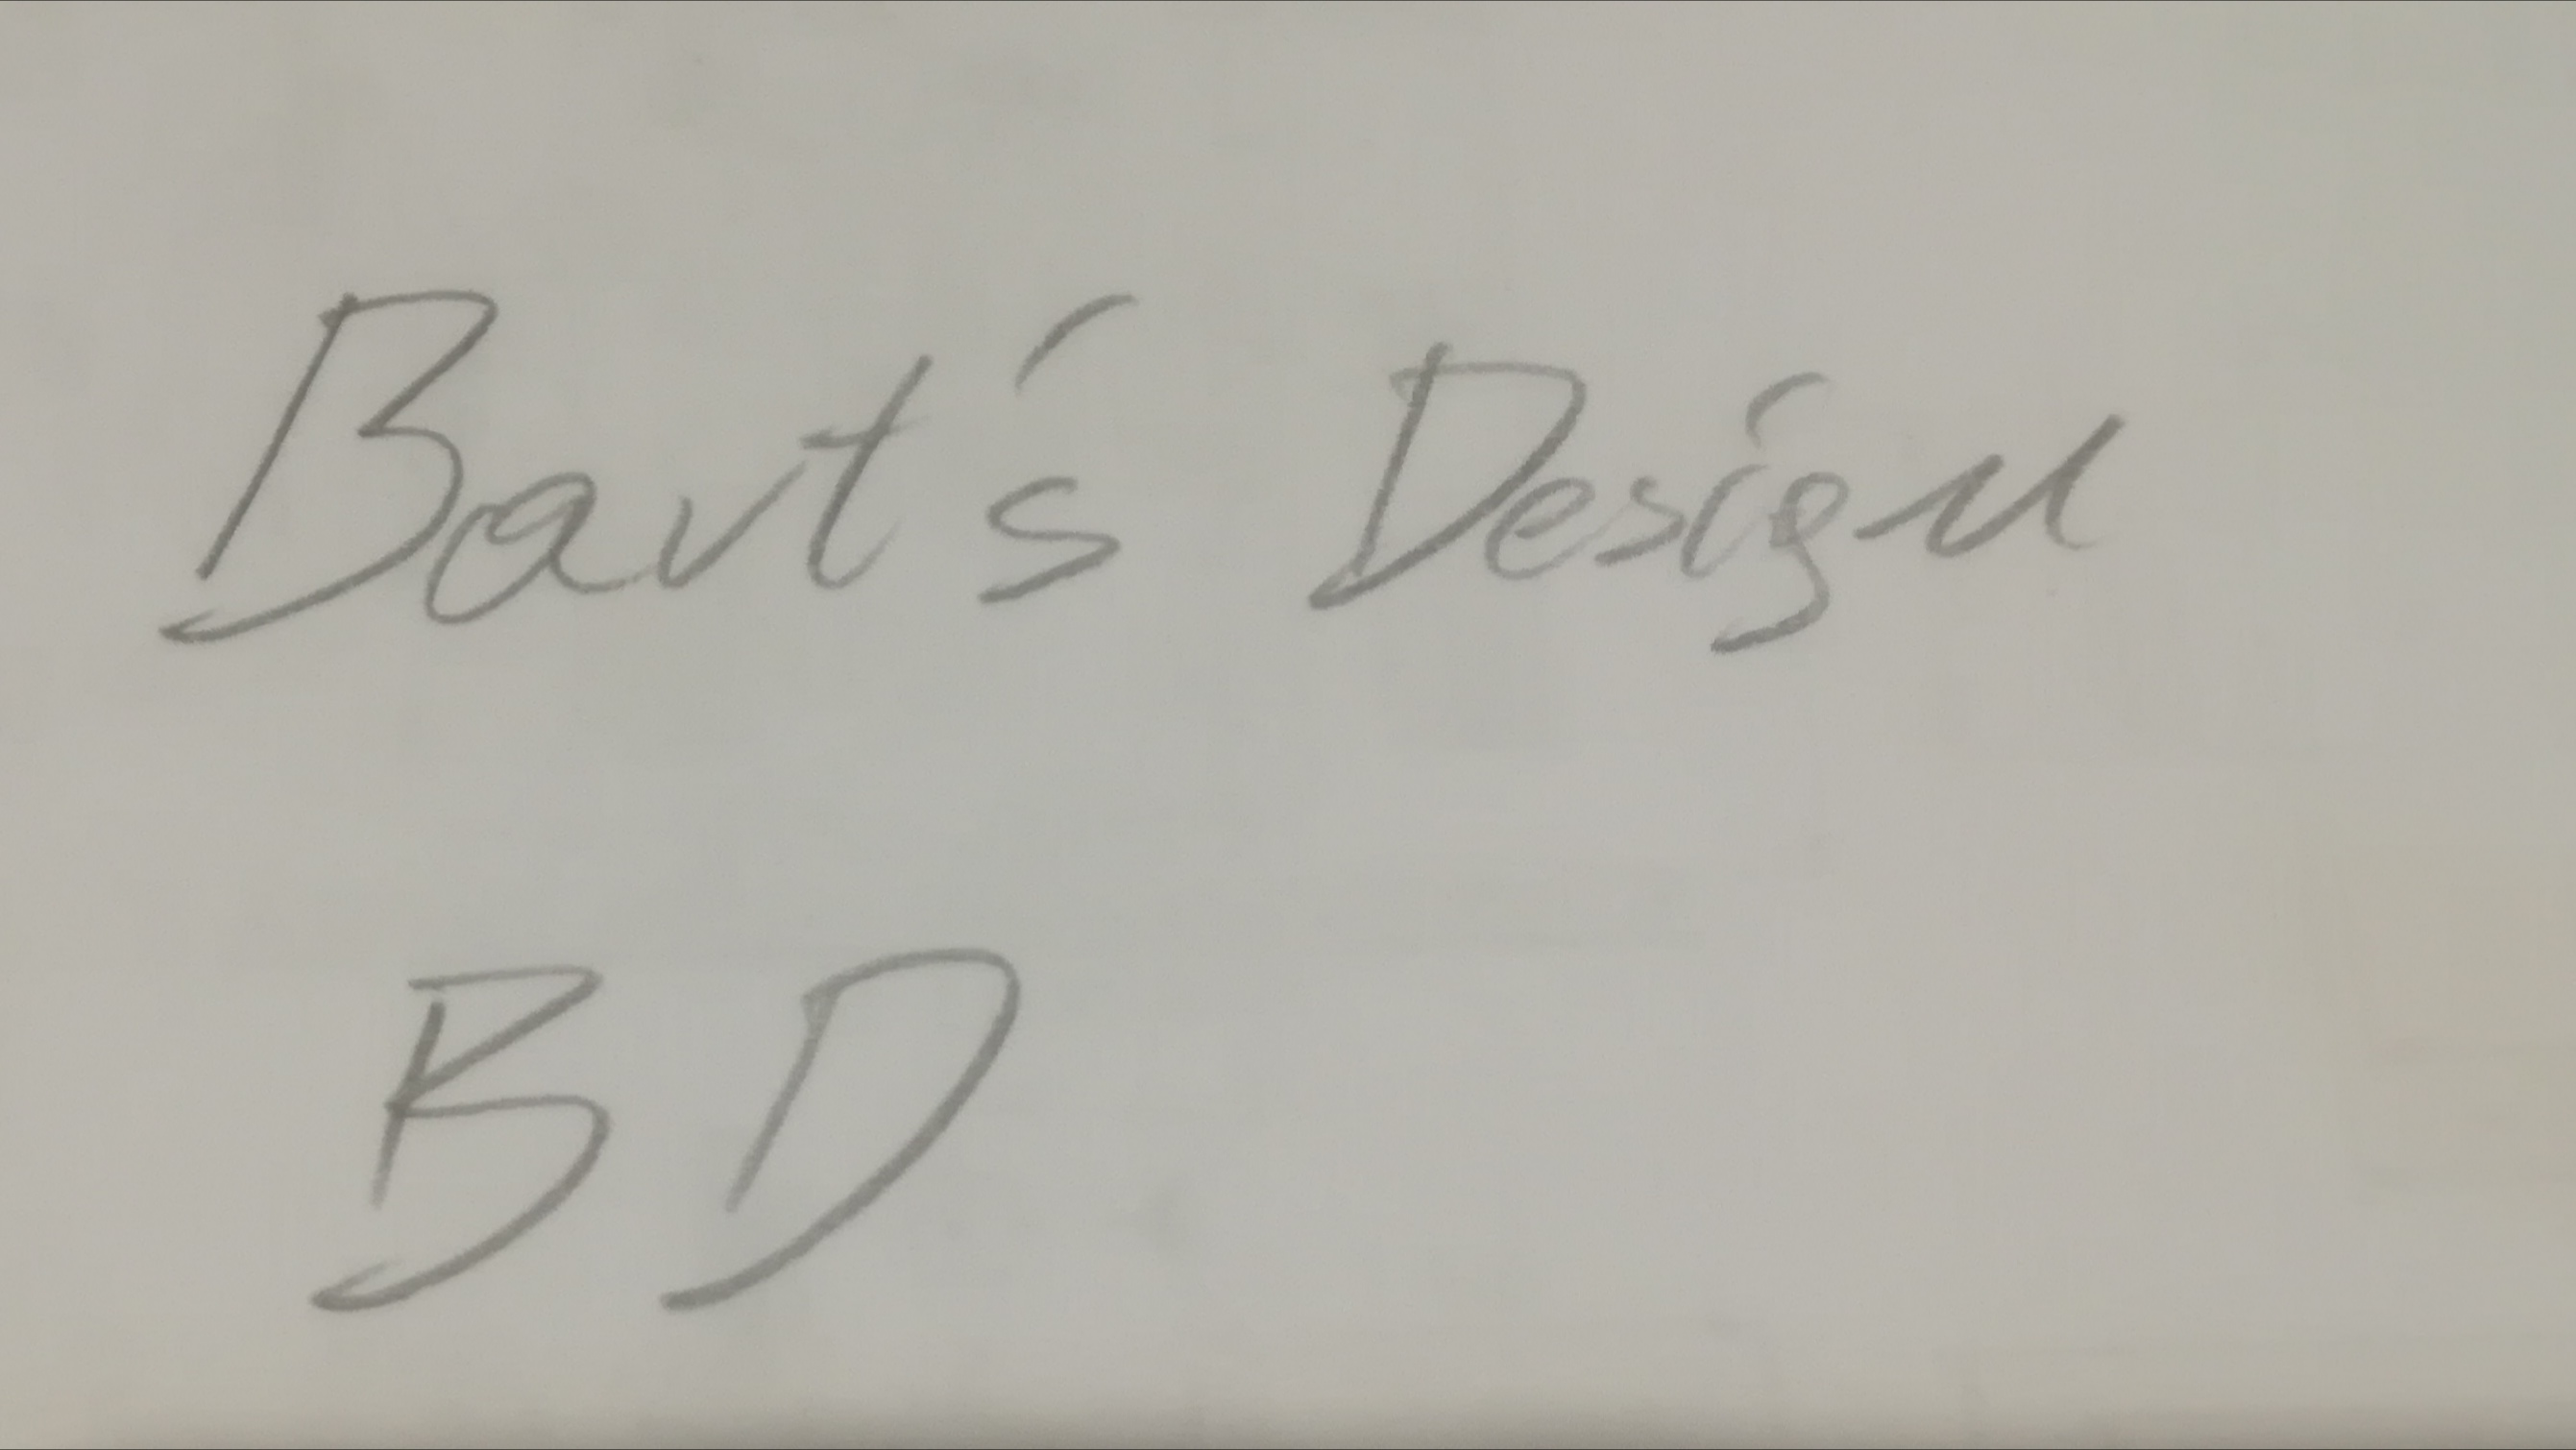 Bart's Design
BD